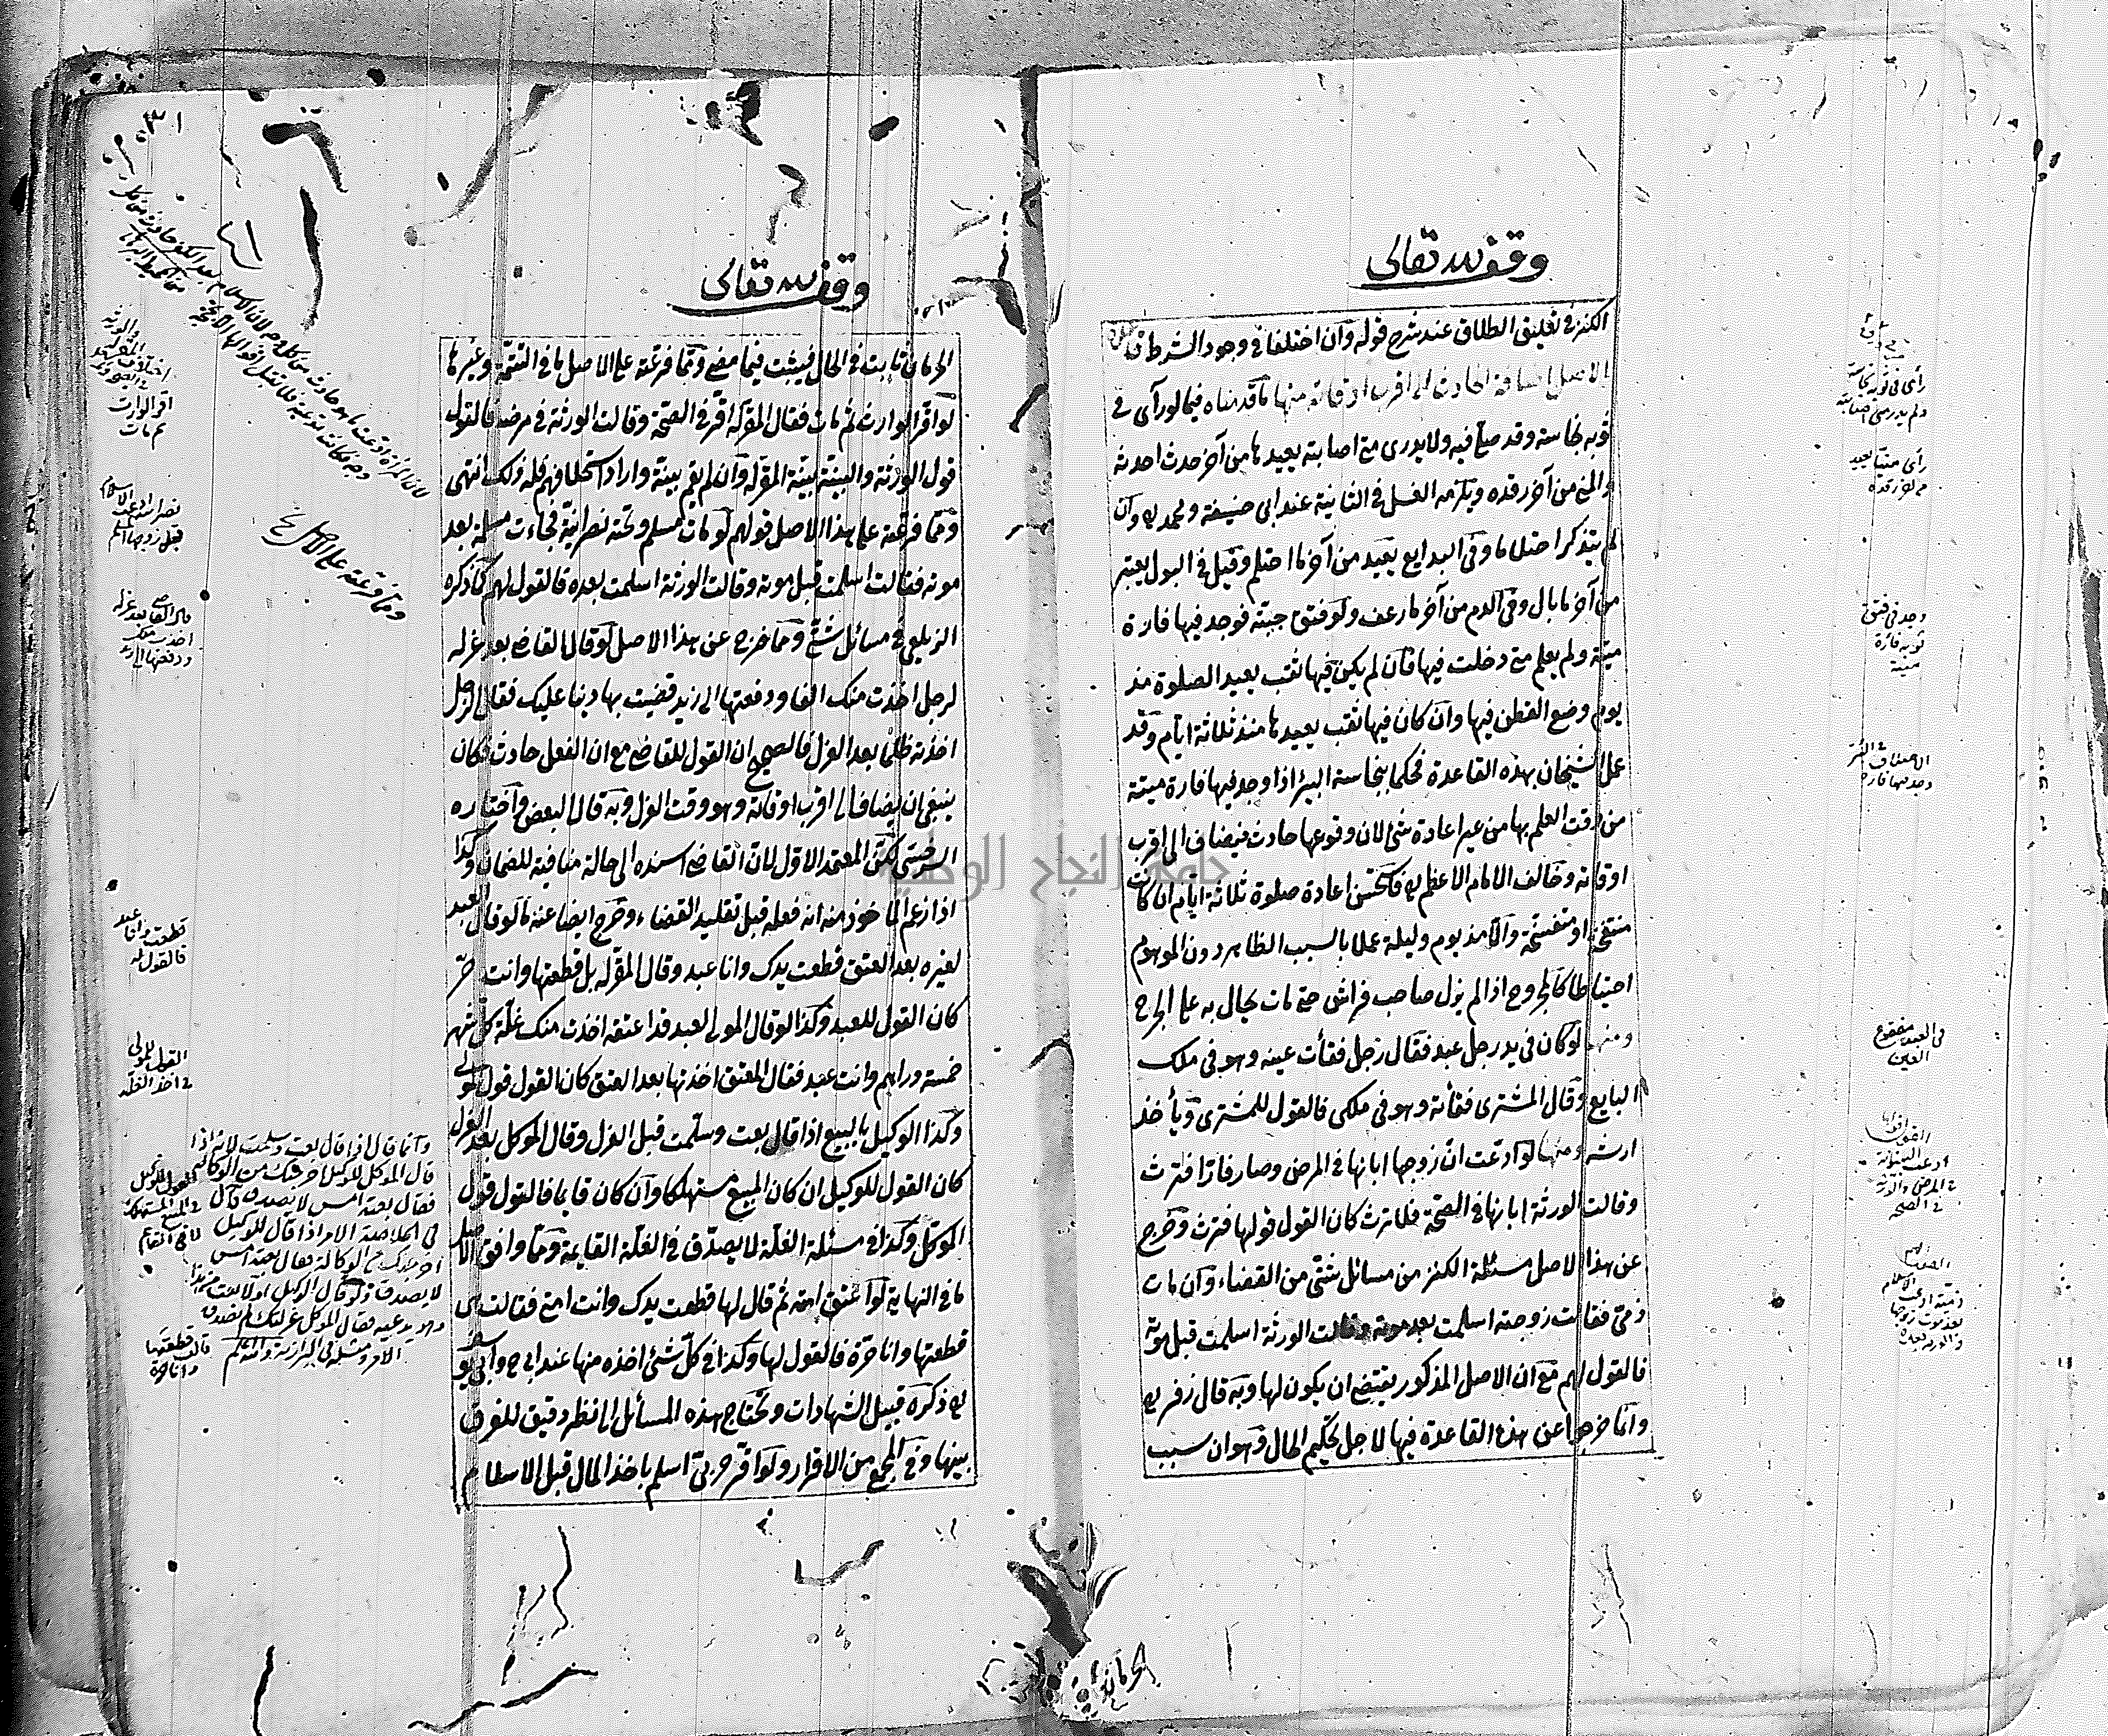 وقف لله تعالى
الكنز في تعليق الطلاق عند شرح قوله وان اختلفا في وجود الشرط
الاصل اضافة الحادث الى اقرب اوقاته منها ما قدمناه فيما لو رأى في
ثوبه نجاسة وقد صلى فيه ولا يدرى متى اصابته يعيدها من آخر حدث احدثه
والمني من آخر رقدة ويلزمه الغسل في الثانية عند ابي حنيفة ومحمد وان
لم يتذكر احتلاما وفي البدايع يعيد من آخر ما احتلم وقيل في البول يعتبر
من آخر ما بال وفي الدم من آخر ما رعف ولو فتق جبته فوجد فيها فارة
ميتة ولم يعلم متى دخلت فيها فان لم يكن فيها ثقب يعيد الصلوة مذ
يوم وضع القطن فيها وان كان فيها ثقب يعيدها منذ ثلاثة ايام وقد
عمل الشيخان بهذه القاعدة فحكما بنجاسة البئر اذا وجد فيها فارة ميتة
من وقت العلم بها من غير اعادة شئ لان وقوعها حادث فيضاف الى اقرب
اوقاته وخالف الامام الاعظم فاستحسن اعادة صلوة ثلاثة ايام ان كانت
منتفخة او متفسخة والا مذ يوم وليلة عملا بالسبب الظاهر دون الموهوم
احتياطا كالمجروح اذا لم يزل صاحب فراش حتى مات يحال به على الجرح
ومنها لو كان في يد رجل عبد فقال رجل فقأت عينه وهو في ملك
البايع وقال المشترى فقأته وهو في ملكي فالقول للمشترى ويأخذ
ارشه ومنها لو ادعت ان زوجها ابانها في المرض وصار فارا فترث
وقالت الورثة ابانها في الصحة فلا ترث كان القول قولها فترث وخرج
عن هذا الاصل مسئلة الكنز من مسائل شتى من القضاء وان مات
ذمي فقالت زوجته اسلمت بعد موته وقالت الورثة اسلمت قبل موته
فالقول لهم مع ان الاصل المذكور يقتضي ان يكون لها وبه قال زفر
وانما خرجوا عن هذه القاعدة فيها لاجل تحكيم الحال وهو ان سبب
الحرمان
رأى في ثوبه نجاسة
ولم يدر متى اصابته
رأى منيا يعيد
من آخر رقدة
وجد في فتق
ثوبه فارة
ميتة
وجد فيها فارة
في العبد مفقوع
العين
وقف لله تعالى
الحرمان ثابت في الحال فيثبت فيما مضى ومما فرعته على الاصل ما في اليتيمة وغيرها
لو اقر لوارث ثم مات فقال المقر له اقر في الصحة وقالت الورثة في مرضه فالقول
قول الورثة والبينة بينة المقر له وان لم يقم بينة واراد استحلافهم فله ذلك انتهى
ومما فرعته على هذا الاصل قولهم لو مات مسلم وتحته نصرانية فجاءت مسلمة بعد
موته فقالت اسلمت قبل موته وقالت الورثة اسلمت بعده فالقول لهم كما ذكره
الزيلعي في مسائل شتى ومما خرج عن هذا الاصل لو قال القاضي بعد عزله
لرجل اخذت منك الفا ودفعتها الى زيد قضيت بها دينا عليك فقال الرجل
اخذته ظلما بعد العزل فالصحيح ان القول للقاضي مع ان الفعل حادث فكان
ينبغي ان يضاف الى اقرب اوقاته وهو وقت العزل وبه قال البعض واختاره
السرخسي لكن المعتمد الاول لان القاضي اسنده الى حالة منافية للضمان وكذا
اذا زعم المأخوذ منه انه فعله قبل تقليد القضاء وخرج ايضا عنه ما لو قال العبد
لغيره بعد العتق قطعت يدك وانا عبد وقال المقر له بل قطعتها وانت حر
كان القول للعبد وكذا لو قال المولى لعبد قد اعتقه اخذت منك غلة كل شهر
خمسة دراهم وانت عبد فقال المعتق اخذتها بعد العتق كان القول قول المولى
وكذا الوكيل بالبيع اذا قال بعت وسلمت قبل العزل وقال الموكل بعد العزل
كان القول للوكيل ان كان المبيع مستهلكا وان كان قايما فالقول قول
الموكل وكذا في مسئلة الغلة لا يصدق في الغلة القايمة ومما وافق الاصل
ما في النهاية لو اعتق امته ثم قال لها قطعت يدك وانت امتي فقالت هي
قطعتها وانا حرة فالقول لها وكذا في كل شئ اخذه منها عند ابي ح وابي يوسف
ذكره قبيل الشهادات وتحتاج هذه المسائل الى نظر دقيق للفرق
بينها وفي المجمع من الاقرار ولو اقر حربي اسلم باخذ المال قبل الاسلام
اقر الوارث
ثم مات
قبل زوجها المسلم
ومما فرعته على الاصل الخ
قطعت وانا عبد
فالقول له
القول للمولى
في اخذ الغلة
قالت قطعتها
وانا حرة
جامعة النجاح الوطنية